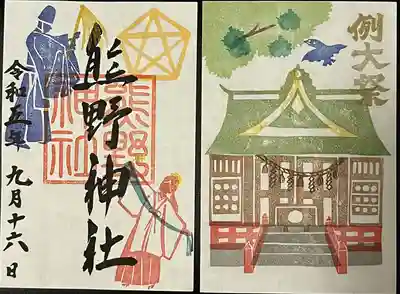 熊野神社
熊野
神社
令和五年
九月十六日
例大祭